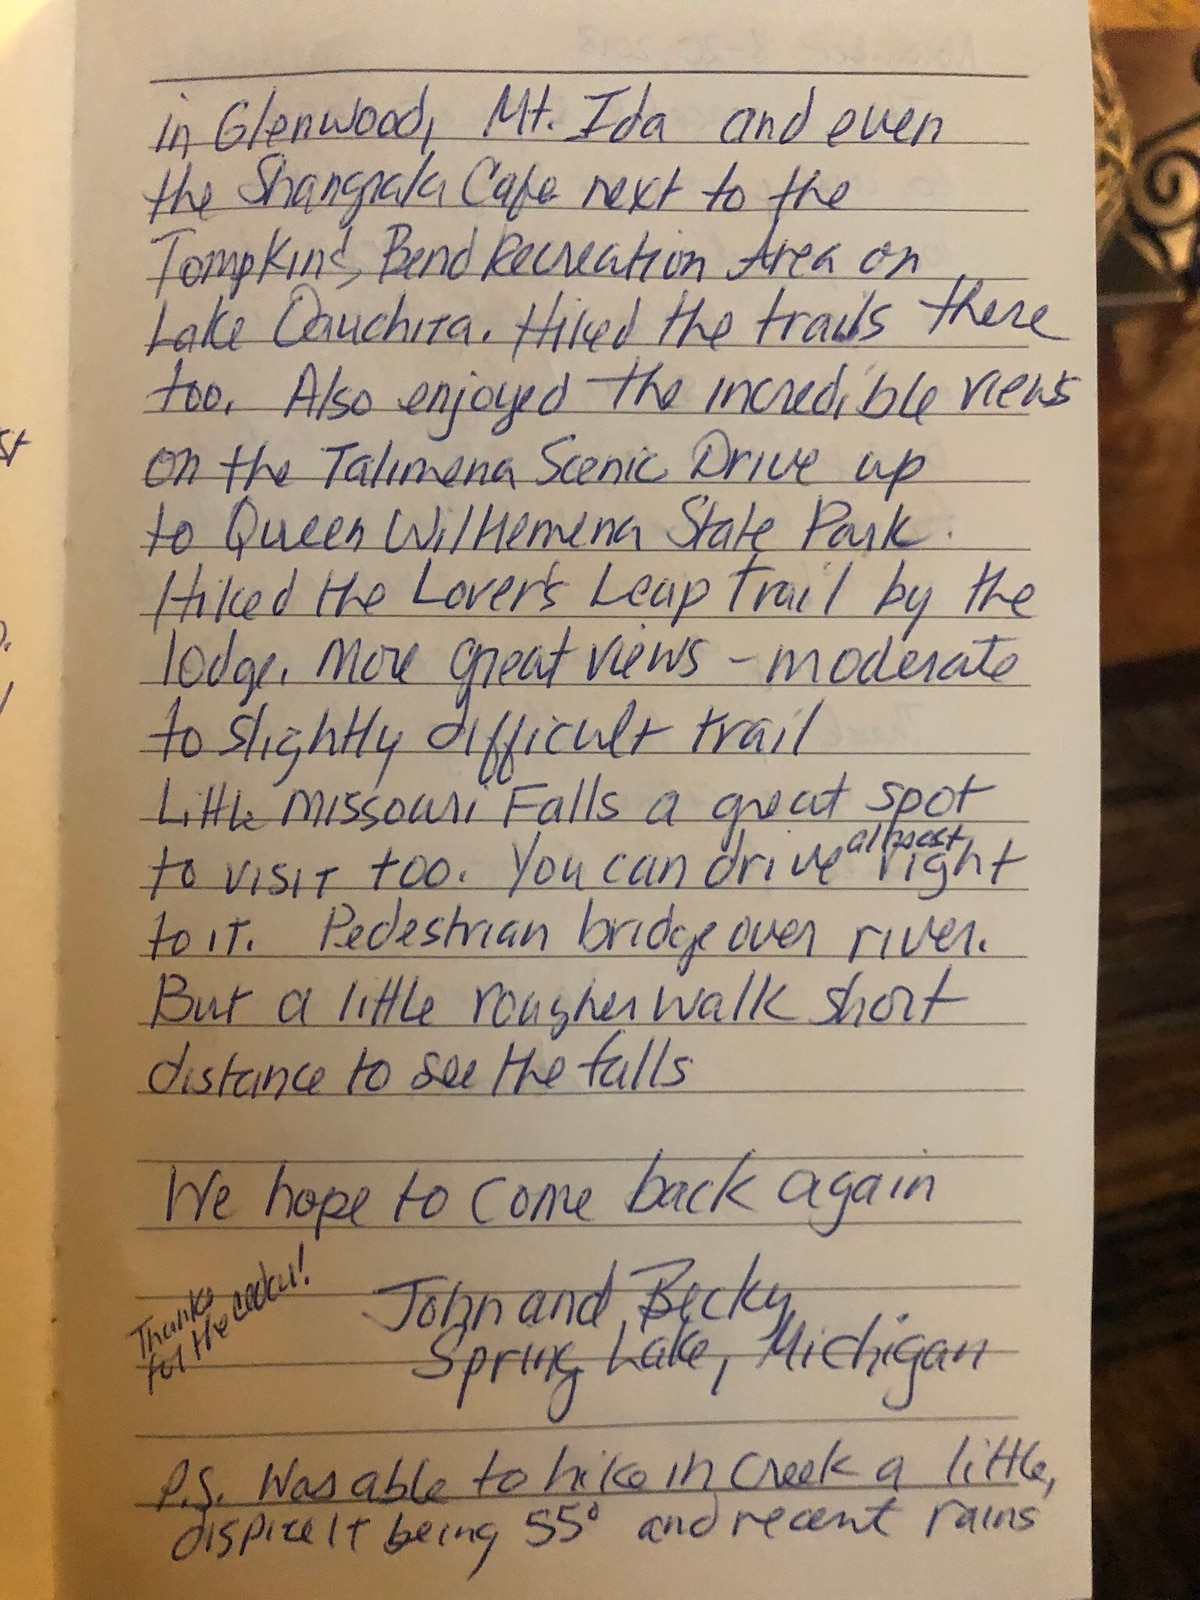 in Glenwood, Mt. Ida and even
the Shangrala Cafe next to the
Tompkins, Bend Recreation Area on
Lake Oauchita. Hiked the trails there
too. Also enjoyed the incredible views
on the Talimena Scenic Drive up
to Queen Wilhemena State Park.
Hiked the Lover's Leap trail by the
lodge. More great views - moderate
to slightly difficult trail
Little Missouri Falls a great spot
to visit too. You can drive almost right
to it. Pedestrian bridge over river.
But a little rougher walk short
distance to see the falls
We hope to come back again
Thanks
for the cedar!
John and Becky
Spring Lake, Michigan
P.S. Was able to hike in creek a little,
dispite it being 55° and recent rains
st